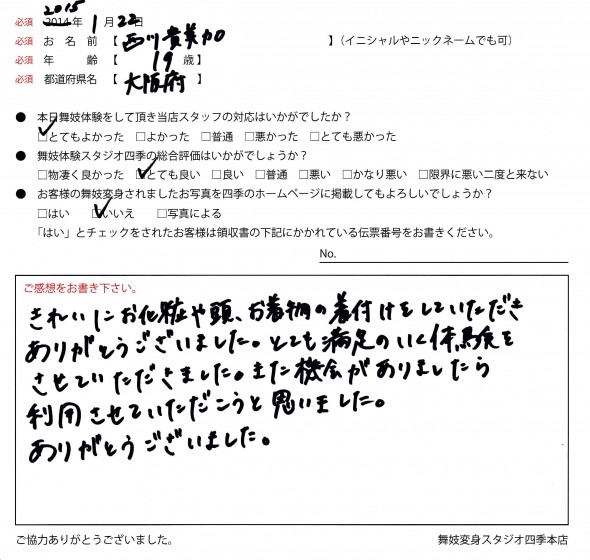 2015
必須 2014年 1月22日
必須 お名前 【 西川貴美加 】(イニシャルやニックネームでも可)
必須 年齢 【 19 歳】
必須 都道府県名 【 大阪府 】
● 本日舞妓体験をして頂き当店スタッフの対応はいかがでしたか?
☑とてもよかった □よかった □普通 □悪かった □とても悪かった
● 舞妓体験スタジオ四季の総合評価はいかがでしょうか?
□物凄く良かった ☑とても良い □良い □普通 □悪い □かなり悪い □限界に悪い二度と来ない
● お客様の舞妓変身されましたお写真を四季のホームページに掲載してもよろしいでしょうか?
□はい ☑いいえ □写真による
「はい」とチェックをされたお客様は領収書の下記にかかれている伝票番号をお書きください。
No.
ご感想をお書き下さい。
きれいにお化粧や頭、お着物の着付けをしていただき
ありがとうございました。とても満足のいく体験を
させていただきました。また機会がありましたら
利用させていただこうと思いました。
ありがとうございました。
ご協力ありがとうございました。 舞妓変身スタジオ四季本店